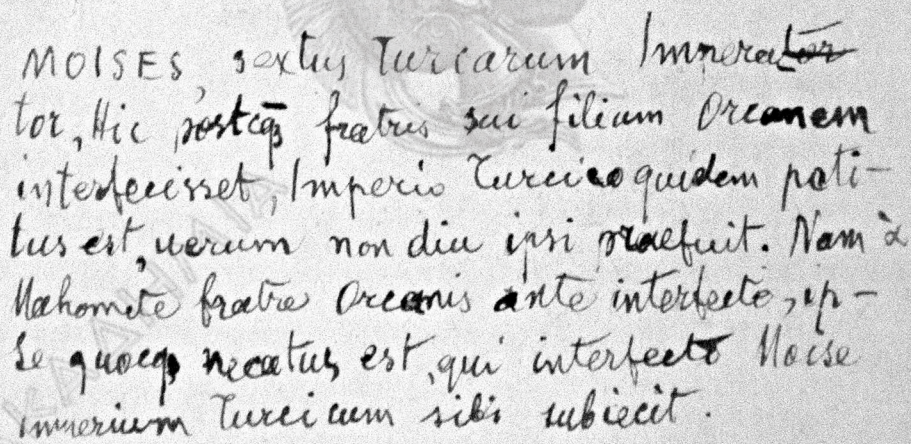 MOISES, sextus Turcarum Imperator
tor, Hic postcqꝫ fratris sui filium Orcanem
interfecisset, Imperio Turcico quidem poti-
tus est, uerum non diu ipsi praefuit. Nam à
Mahomete fratre Orcanis ante interfecto, ip-
se quoqꝫ necatus est, qui interfecto Moise
imperium Turcicum sibi subiecit.